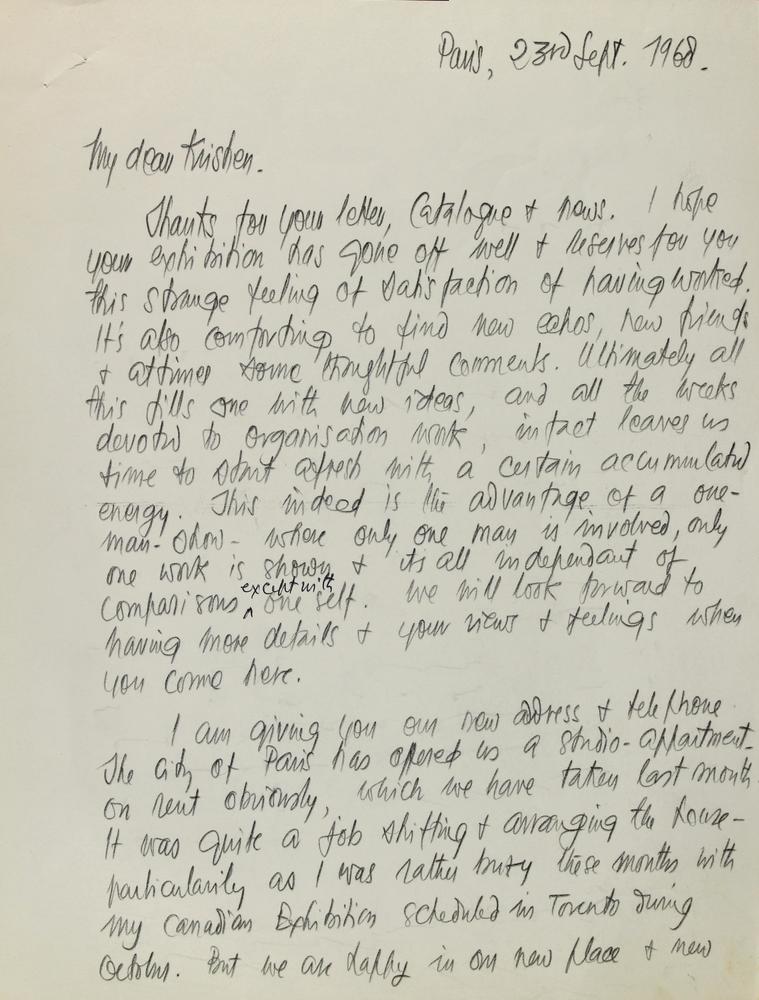 Paris, 23rd Sept. 1968.
My dear Krishen.
Thanks for your letter, Catalogue & news. I hope
your exhibition has gone off well & reserves for you
this strange feeling of satisfaction of having worked.
It's also comforting to find new echos, new friends
& at times some thoughtful comments. Ultimately all
this fills one with new ideas, and all the weeks
devoted to organisation work, infact leaves us
time to start afresh with a certain accummulated
energy. This indeed is the advantage of a one-
man-show- where only one man is involved, only
one work is shown & its all independant of
comparisons except with one self. We will look forward to
having more details & your views & feelings when
you come here.
I am giving you our new address & telephone
The city of Paris has offered us a studio-appartment-
on rent obviously, which we have taken last month
It was quite a job shifting & arranging the house-
particularily as I was rather busy these months with
my Canadian Exhibition scheduled in Toronto during
October. But we are happy in our new place & new